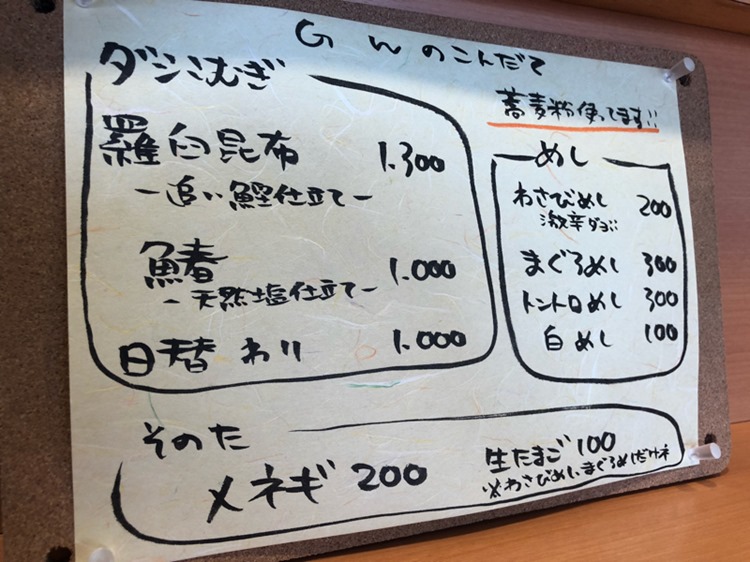 GWのこんだて
ダシこむぎ
羅臼昆布 1.300
ー追い鰹仕立てー
鰆 1.000
ー天然塩仕立てー
日替わり 1.000
蕎麦粉使ってます!!
めし
わさびめし 200
激辛ダヨ!!
まぐろめし 300
トントロめし 300
白めし 100
そのた
メネギ 200
生たまご 100
※わさびめしまぐろめしだけネ